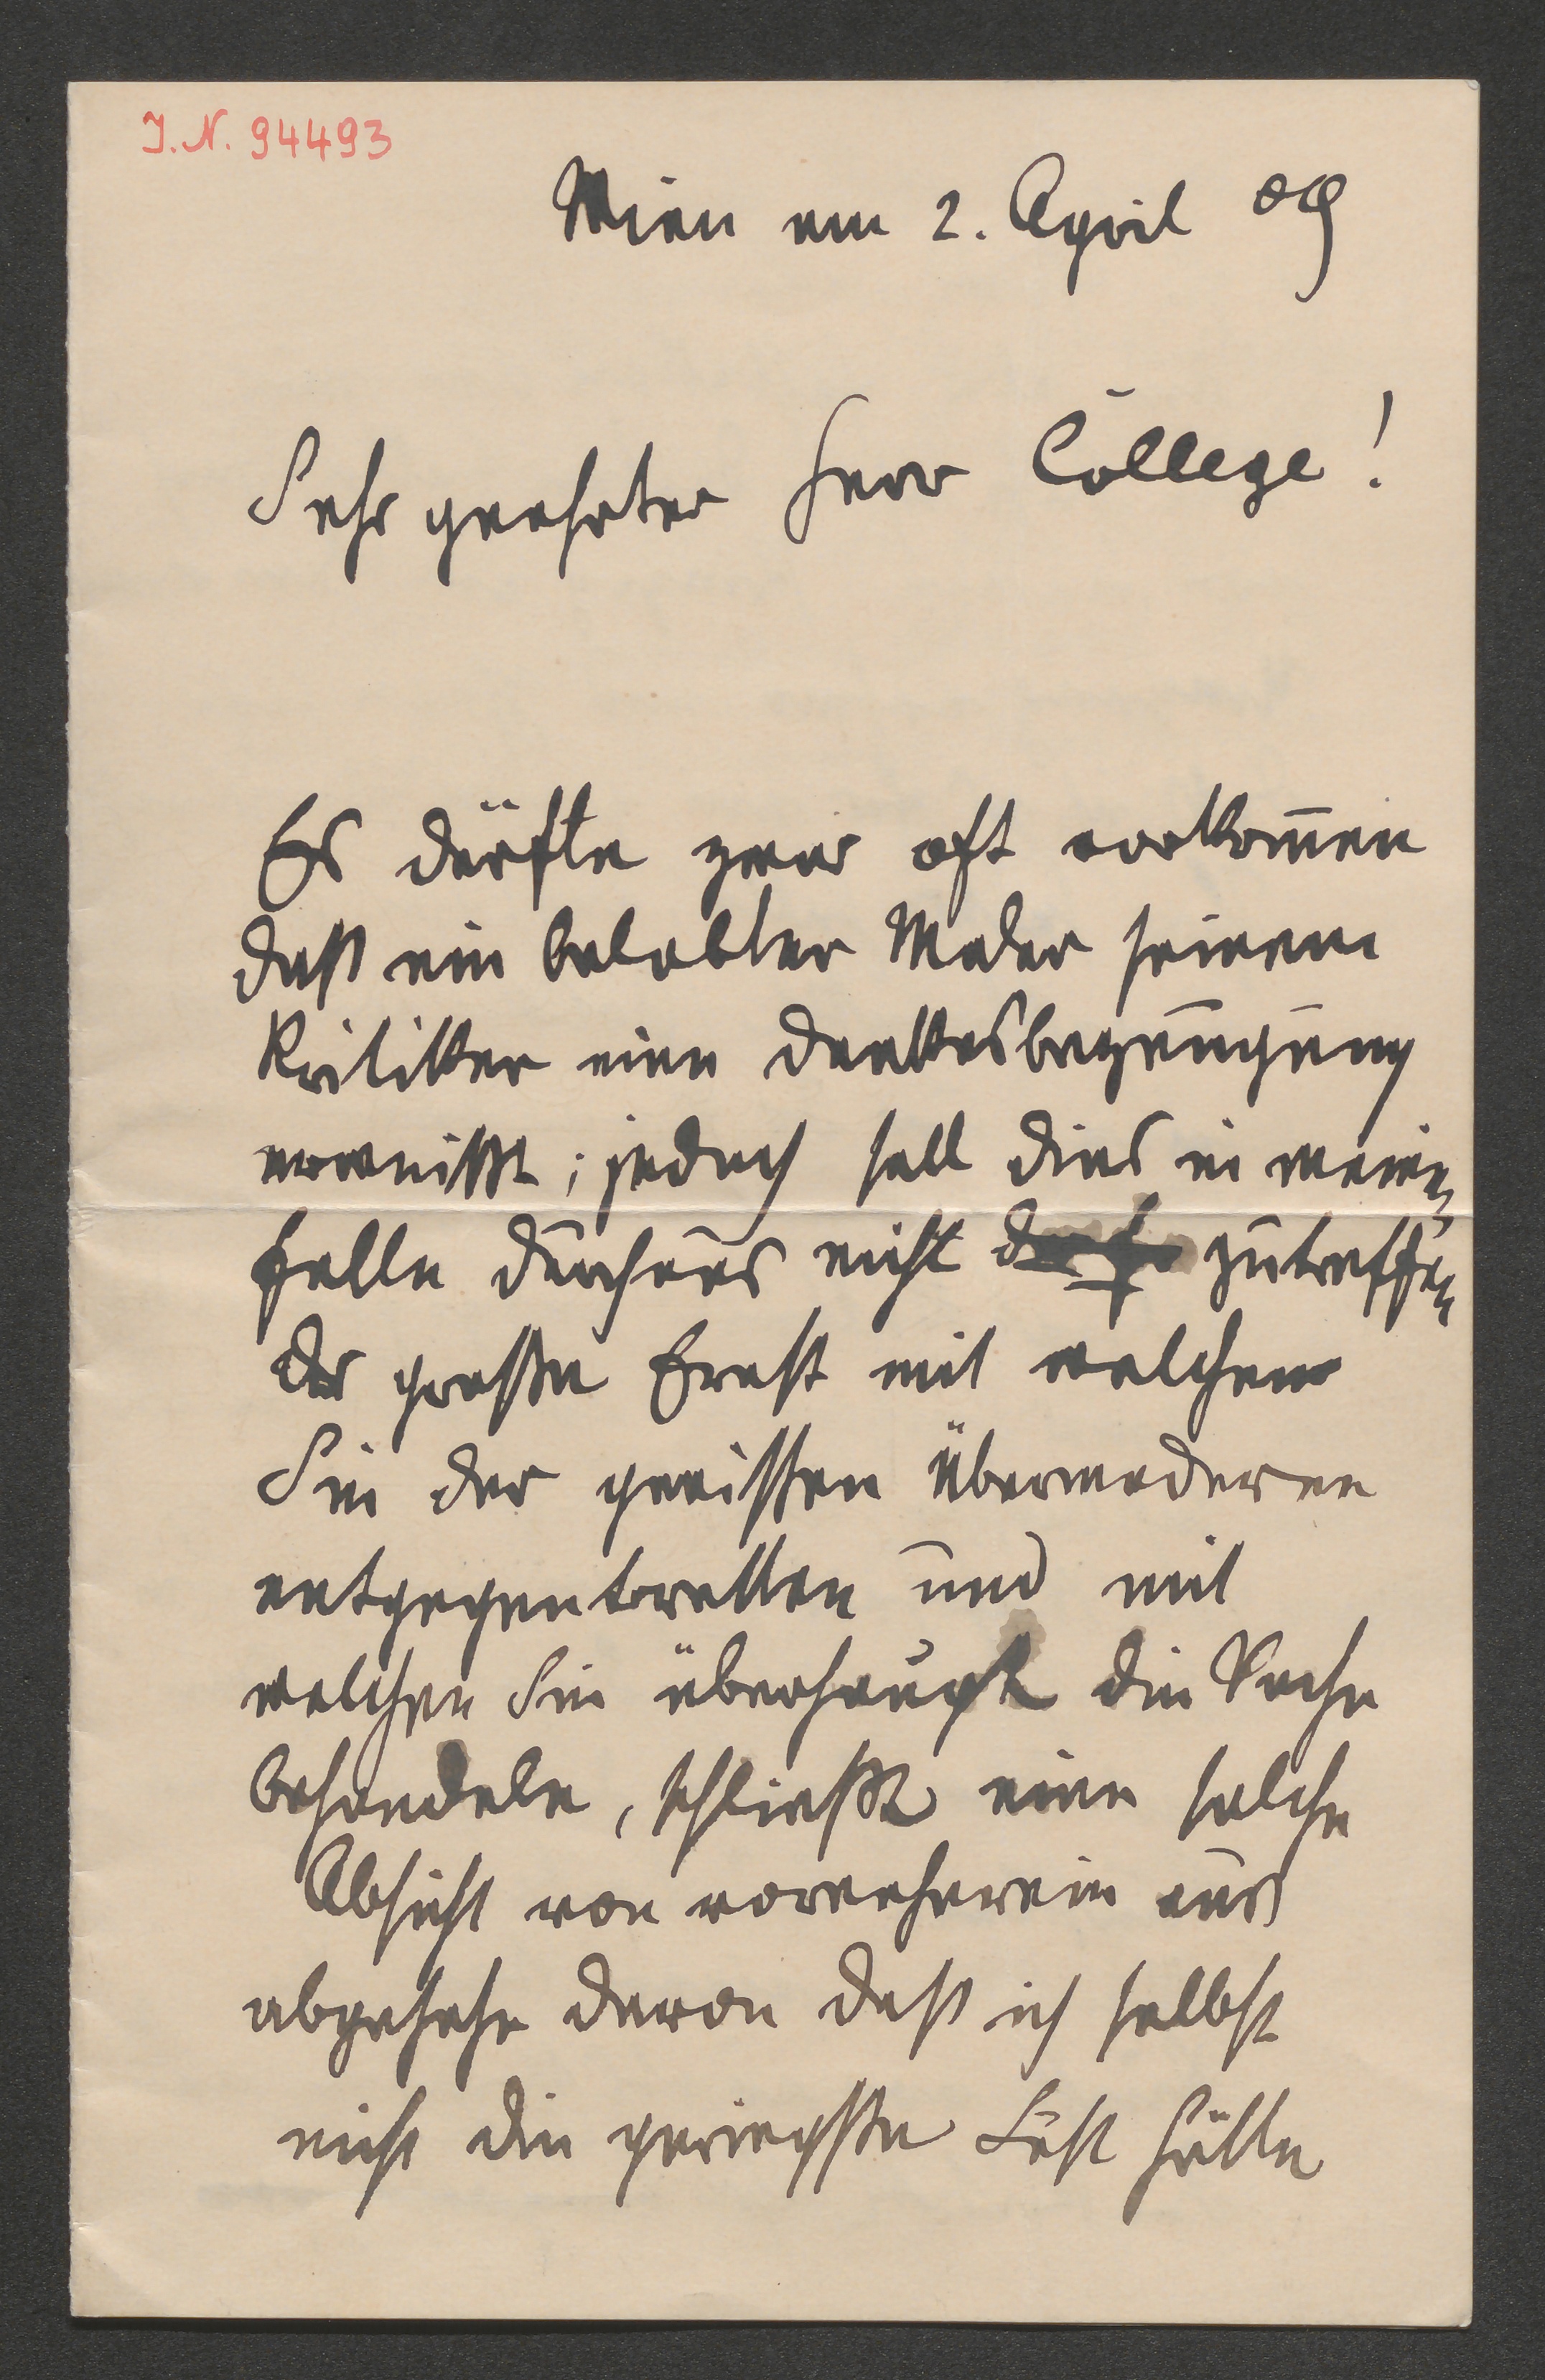 I.N. 94493
Wien am 2. April 09
Sehr geehrter Herr College!
Es dürfte zwar oft vorkom̄en
daß ein belobter Maler seinem
Kritiker eine Dankesbezeugung
erweißt; jedoch soll dies in mein
Falle durchaus nicht zutreffen
der große Ernst mit welchem
Sie der gewißen Übermoderne
entgegentretten und mit
welchen Sie überhaupt die Sache
behandeln, schließt eine solche
Absicht von vorneherein aus
abgesehe davon daß ich selbst
nicht die geringste Lust hätte